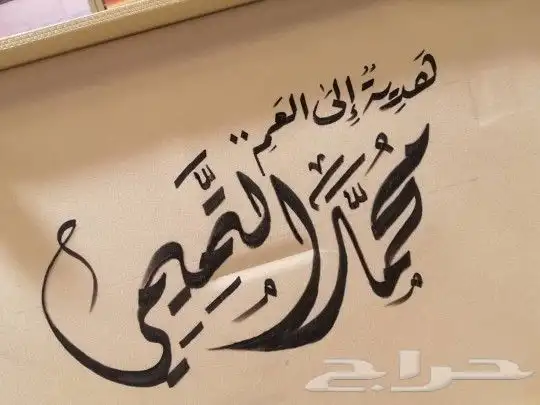 هَدِيةٌ إِلىَ العَمِ..
محُمَّد التَّمِيمِي
حراج